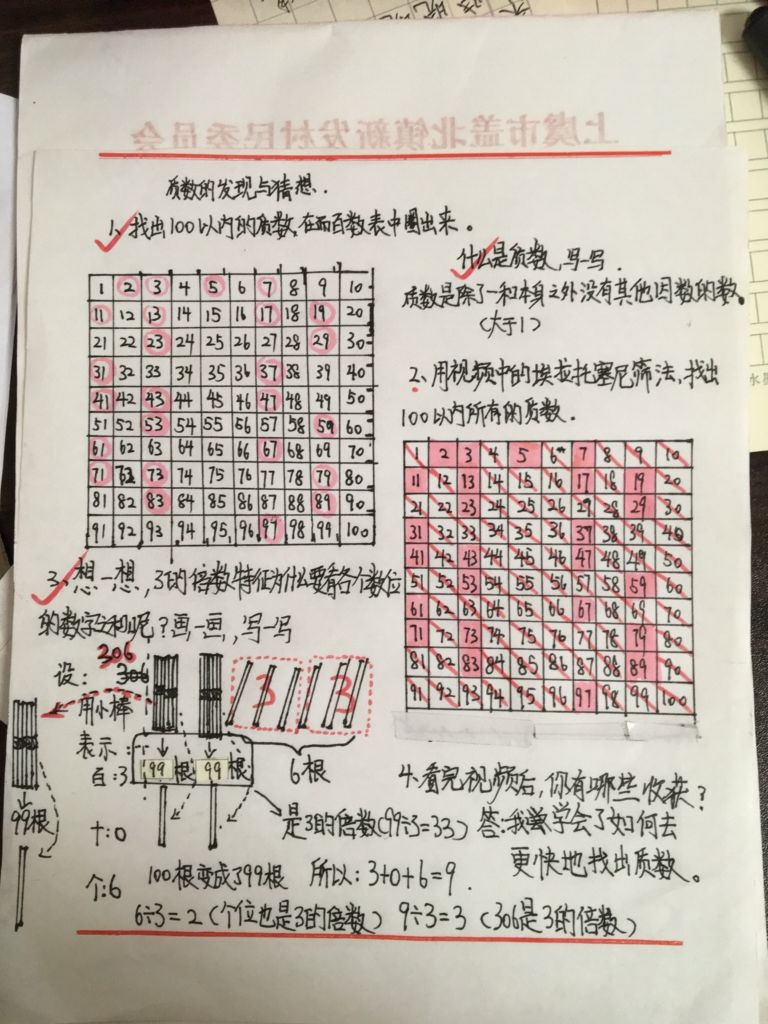 上虞市盖北镇新发村民委员会
质数的发现与猜想.
1、找出100以内的质数,在百数表中圈出来。
什么是质数,写一写.
质数是除了一和本身之外没有其他因数的数。
(大于1)
1 2 3 4 5 6 7 8 9 10
11 12 13 14 15 16 17 18 19 20
21 22 23 24 25 26 27 28 29 30
31 32 33 34 35 36 37 38 39 40
41 42 43 44 45 46 47 48 49 50
51 52 53 54 55 56 57 58 59 60
61 62 63 64 65 66 67 68 69 70
71 72 73 74 75 76 77 78 79 80
81 82 83 84 85 86 87 88 89 90
91 92 93 94 95 96 97 98 99 100
2、用视频中的埃拉托塞尼筛法,找出
100以内所有的质数.
1 2 3 4 5 6 7 8 9 10
11 12 13 14 15 16 17 18 19 20
21 22 23 24 25 26 27 28 29 30
31 32 33 34 35 36 37 38 39 40
41 42 43 44 45 46 47 48 49 50
51 52 53 54 55 56 57 58 59 60
61 62 63 64 65 66 67 68 69 70
71 72 73 74 75 76 77 78 79 80
81 82 83 84 85 86 87 88 89 90
91 92 93 94 95 96 97 98 99 100
3、想一想,3的倍数特征为什么要看各个数位
的数字之和呢?画一画,写一写
306
设: 306
3 3
用小棒
表示:
6根
百:3 99根 99根
99根
是3的倍数(99÷3=33)
十:0
个:6 100根变成了99根 所以:3+0+6=9.
6÷3=2(个位也是3的倍数) 9÷3=3 (306是3的倍数)
4、看完视频后,你有哪些收获?
答:我学会了如何去
更快地找出质数。